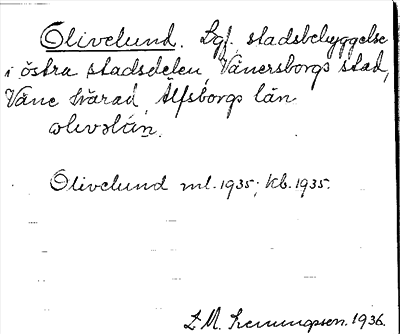 Olivelund. Lgf. stadsbebyggelse
i östra stadsdelen, Vänersborgs stad,
Väne härad, Älfsborgs län
olivəlún.
Olivelund ml. 1935; kb. 1935.
L. M. 1936.